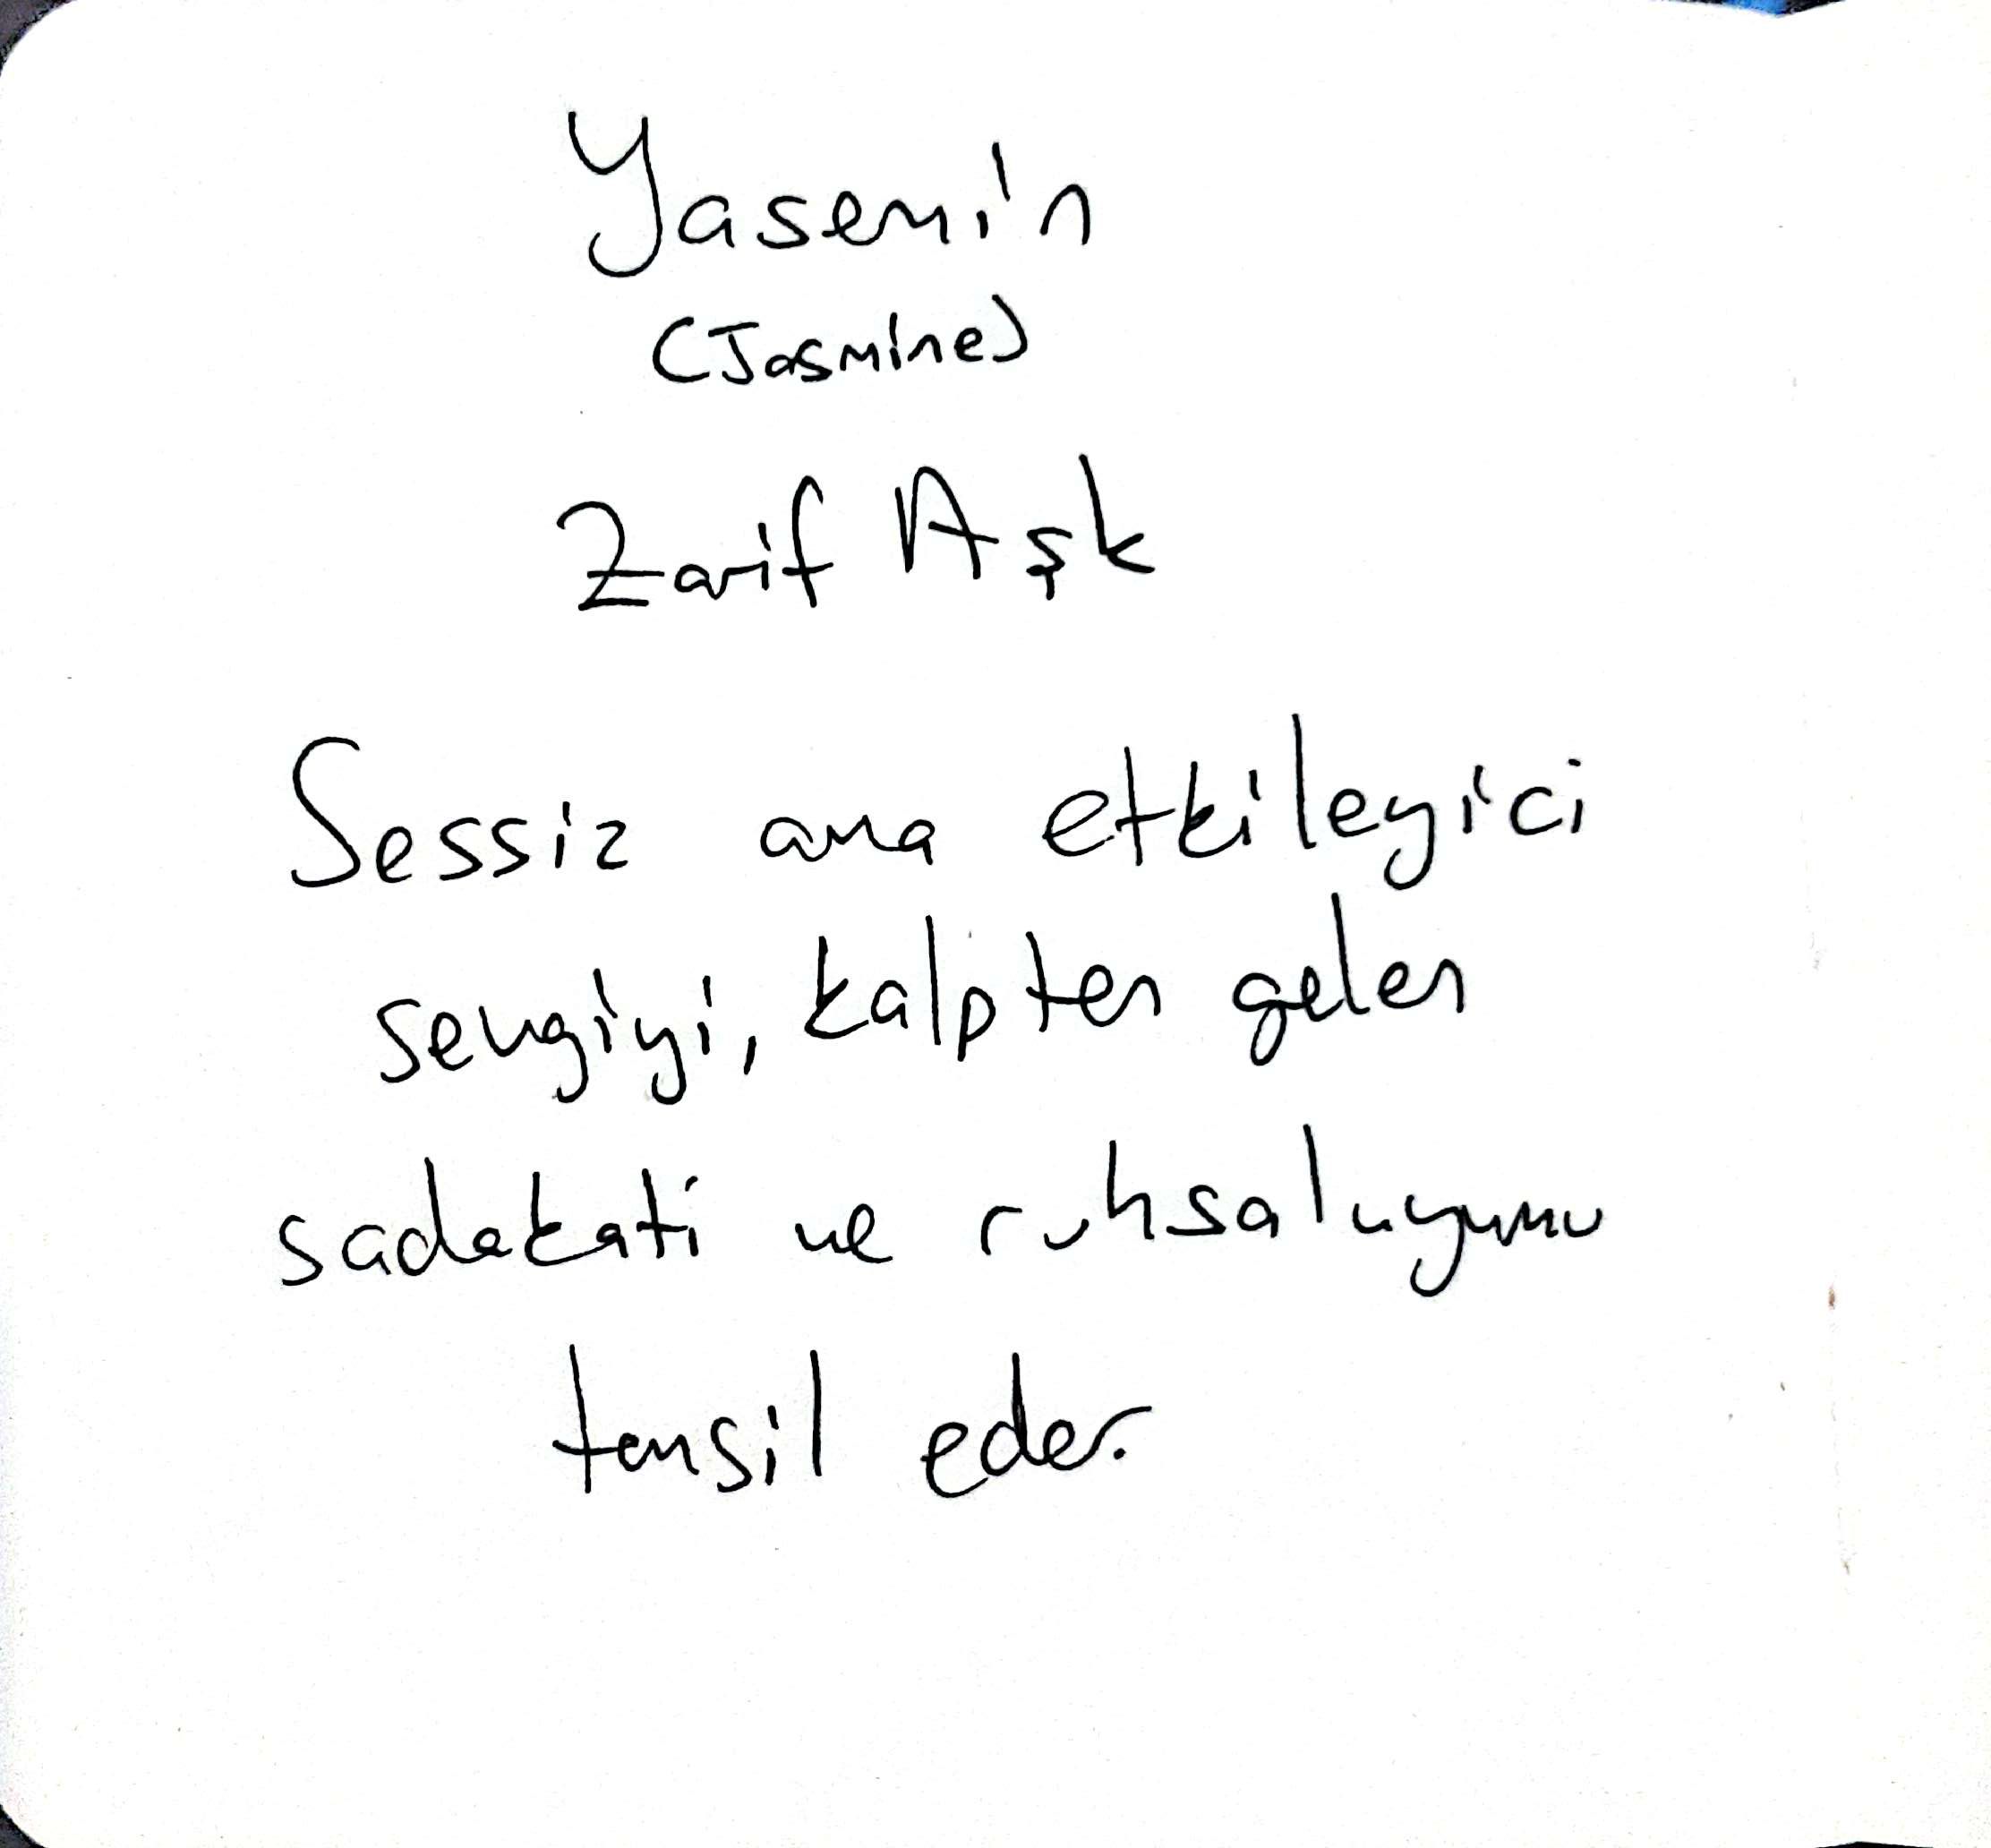 Yasemin
(Jasmine)
Zarif Aşk
Sessiz ama etkileyici
sevgiyi, kalpten gelen
sadakati ve ruhsal uyumu
temsil eder.